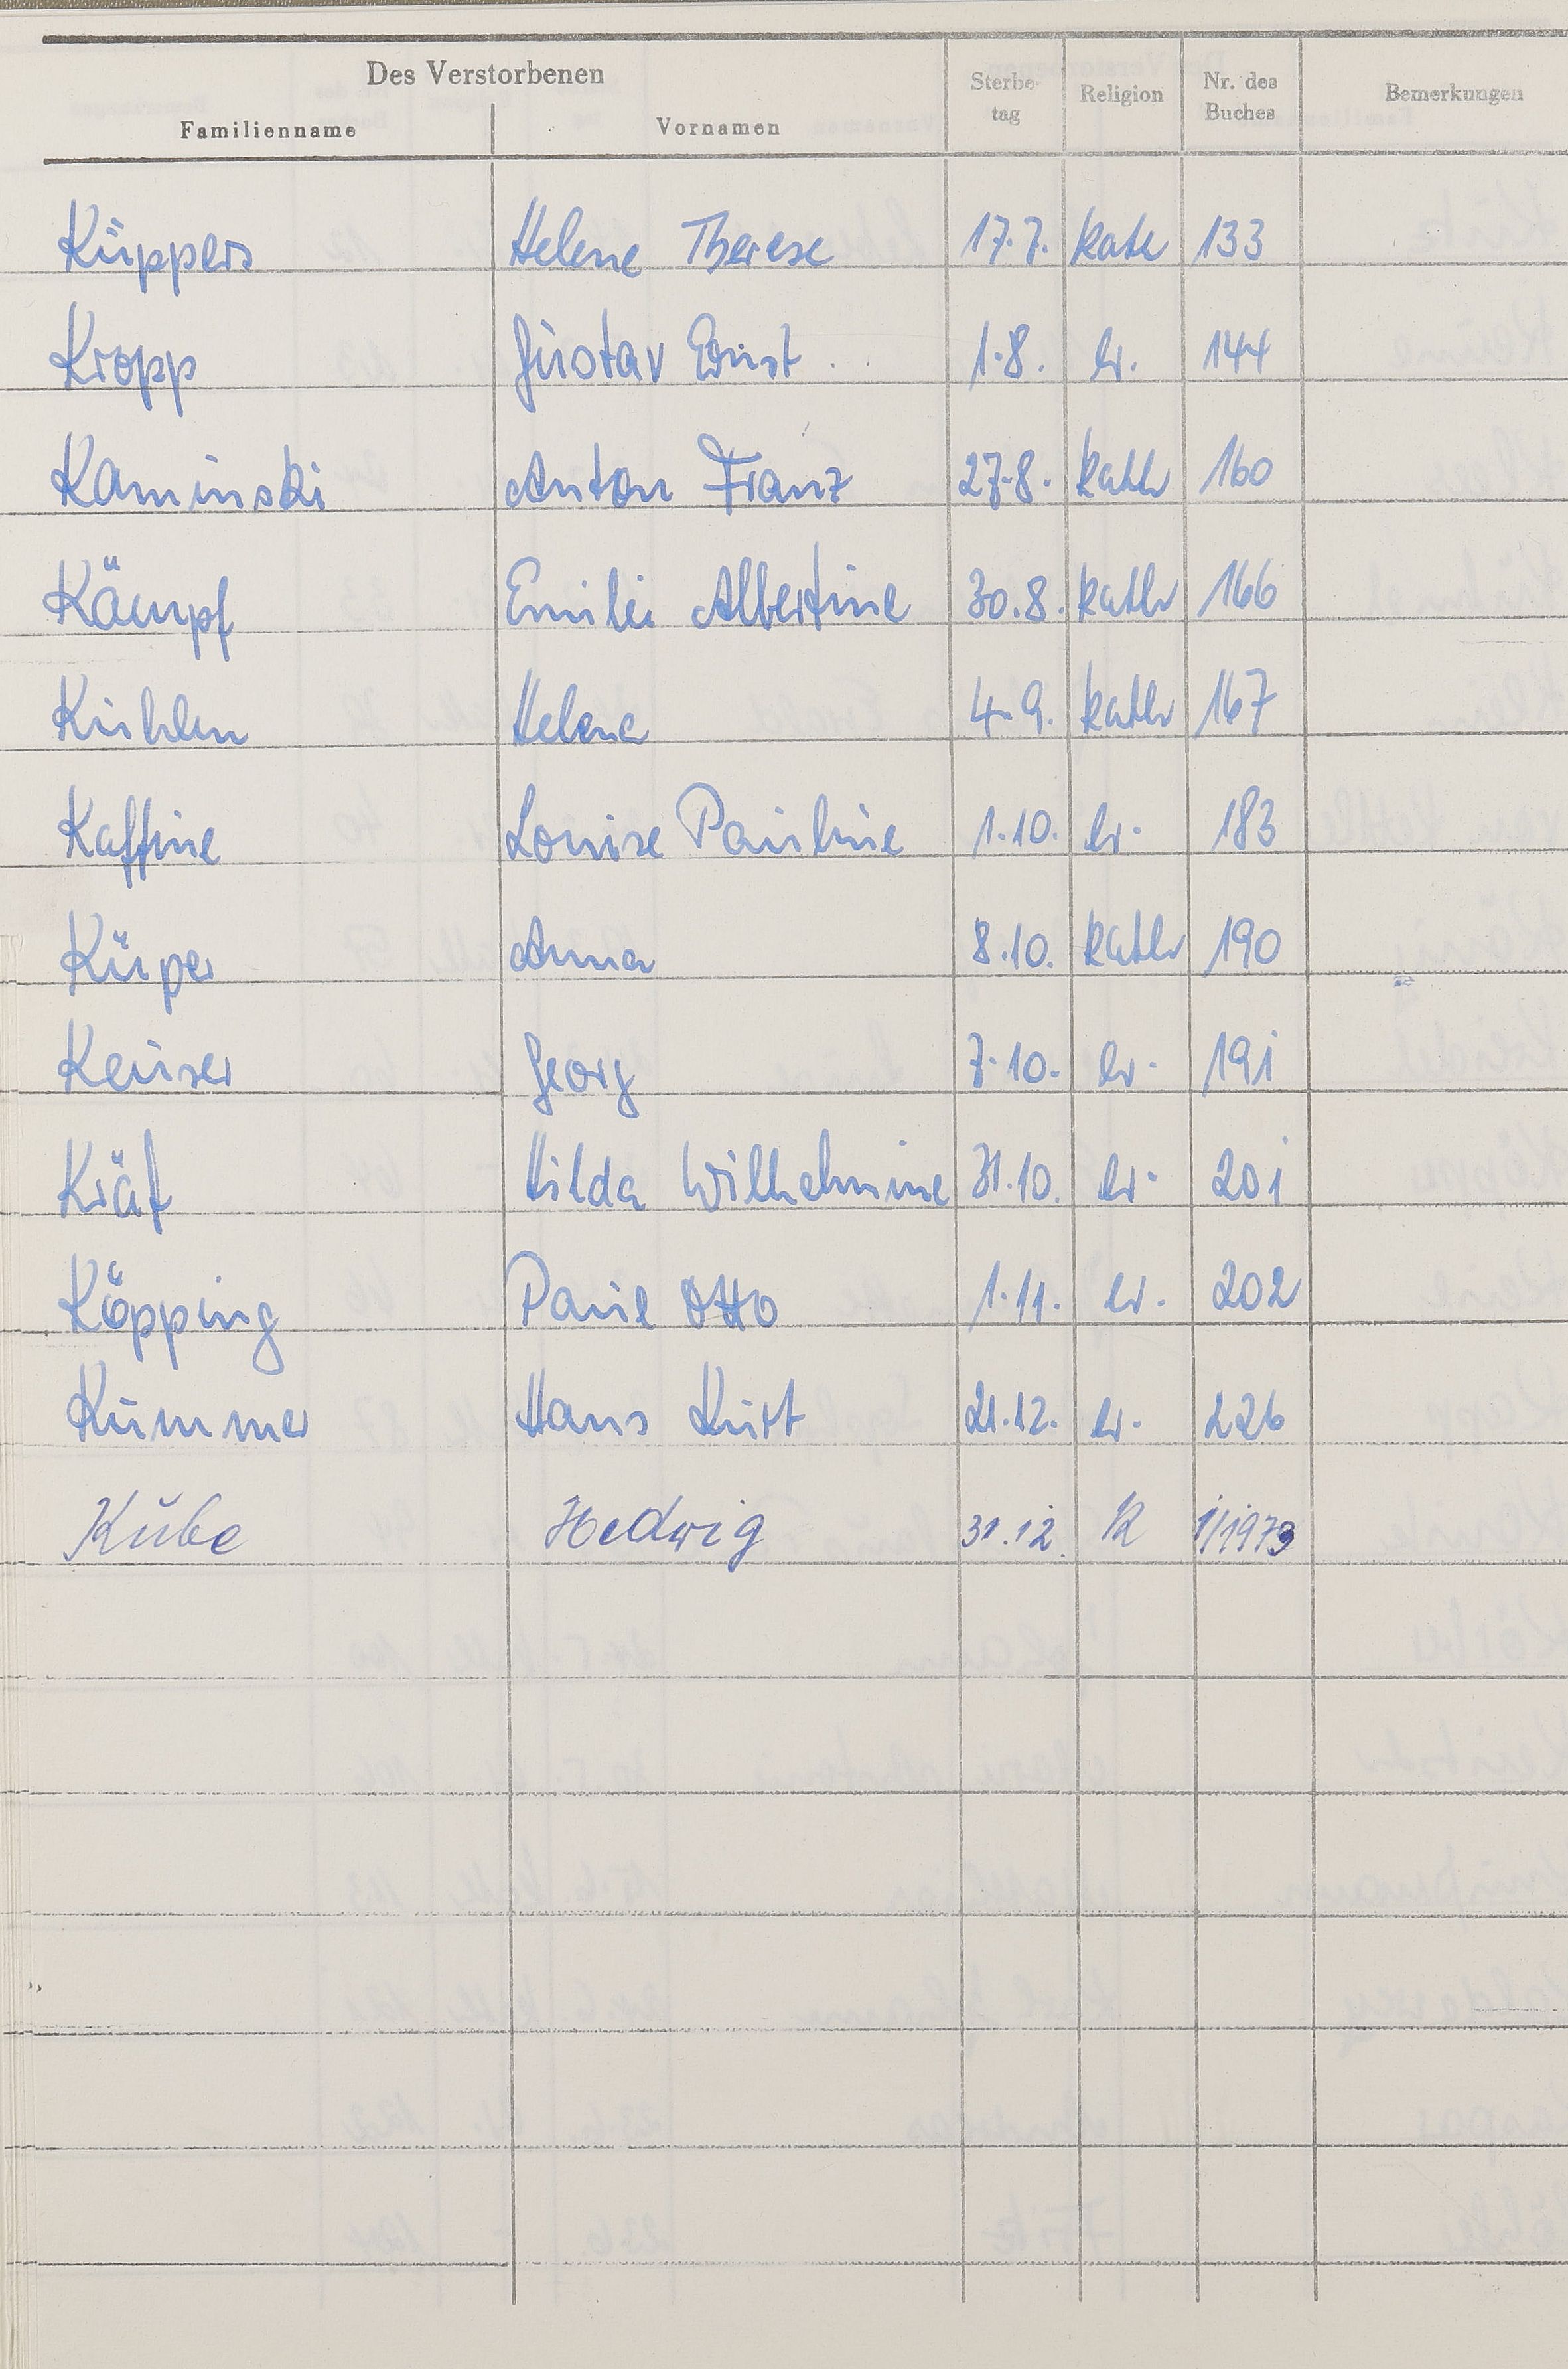 Des Verstorbenen
Familienname Vornamen Sterbe-tag Religion Nr. des Buches Bemerkungen
Küppers Helene Therese 17.7. kath 133
Kropp Gustav Ernst 1.8. ev. 144
Kaminski Anton Franz 27.8. kath 160
Kämpf Emilie Albertine 30.8. kath 166
Kuhlen Helene 4.9. kath 167
Kaffine Louise Pauline 1.10. ev. 183
Küper Anna 8.10. kath 190
Keuser Georg 7.10. ev. 191
Kräf Hilda Wilhelmine 31.10. ev. 201
Köpping Paul Otto 1.11. ev. 202
Kummer Hans Kurt 21.12. ev. 226
Kube Hedwig 31.12. K 1/1973